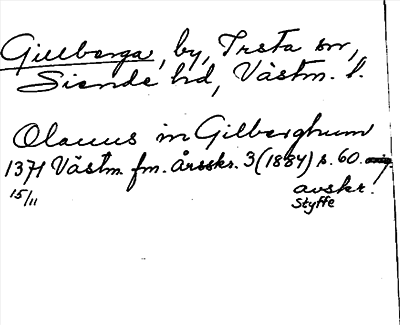 Gillberga, by, Irsta sn,
Siende hd, Västm. l.
Olauus in Gilberghum
1371 Västm. fm. årsskr. 3 (1884) s. 60.
15/11 avskr.
Styffe